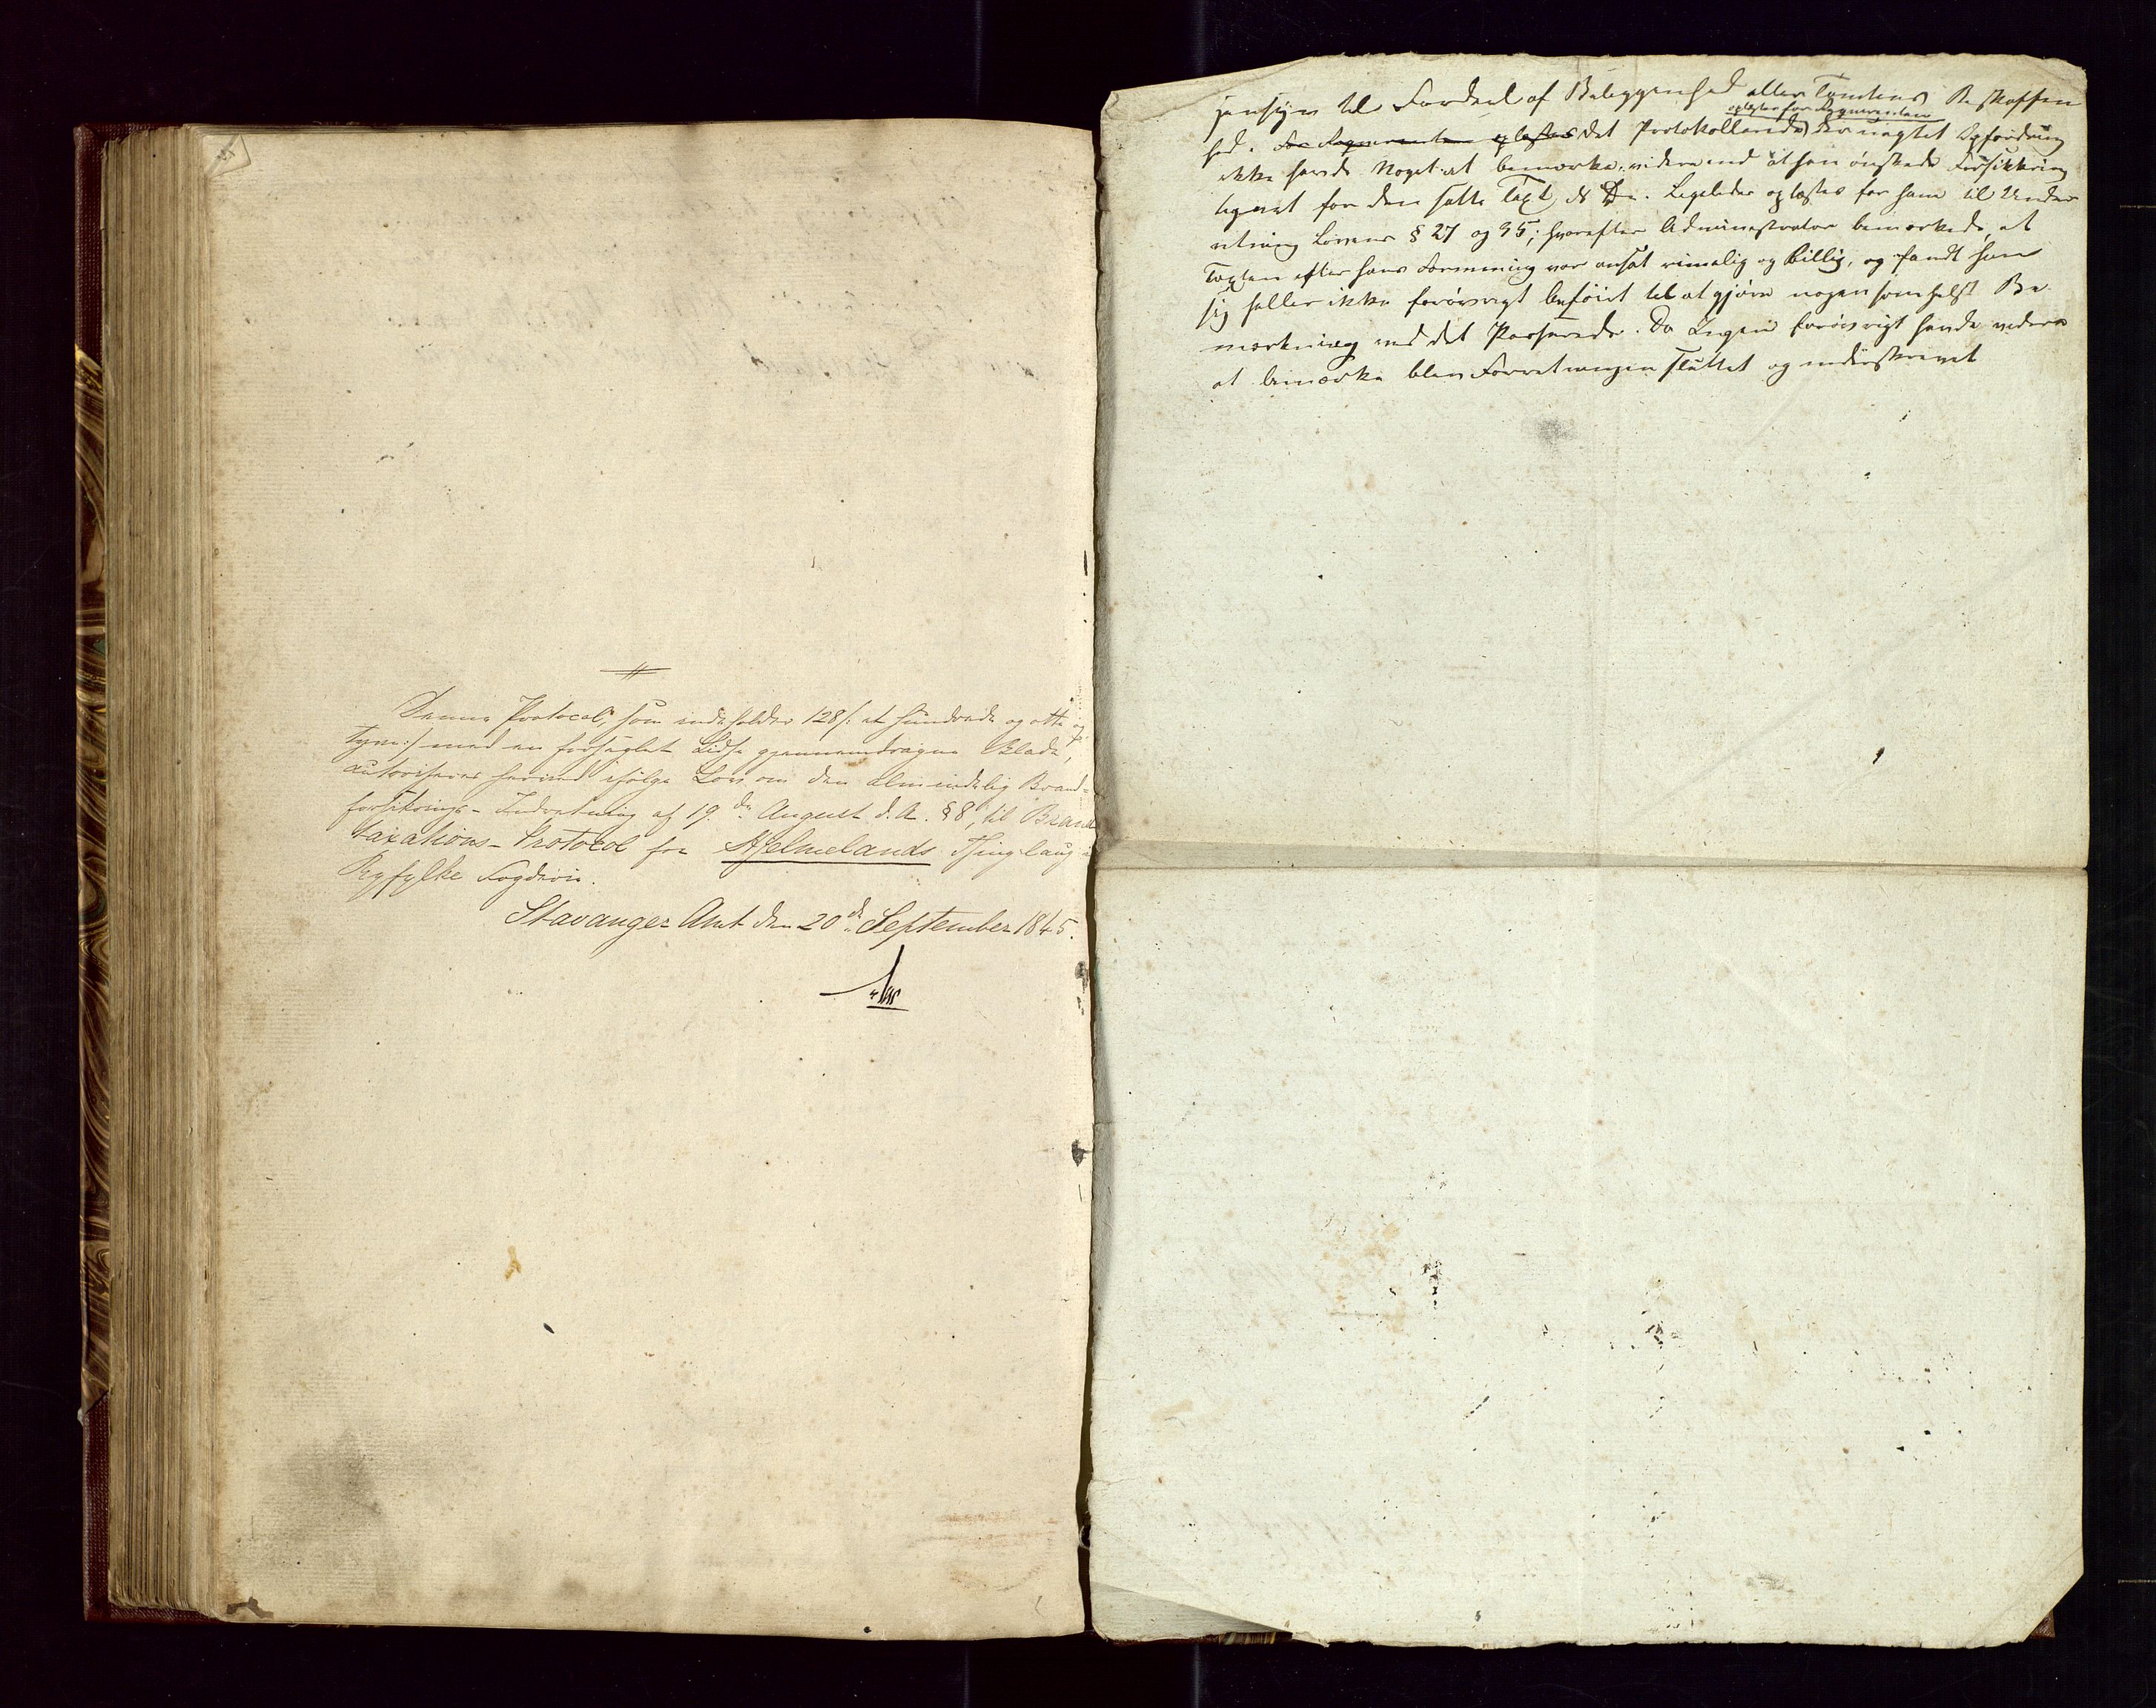 Denne Protocol, som indeholder 128/: et hundrede og otte og
tyve:/ med en forseglet Lidse gjennemdragne Blade,
autoriseres herved ifølge Lov om den almindelig Brand-
forsikrings-Indretning af 19de August d. A. §8, til Brand
taxations-Protocol for Hjelmelands Thinglaug i
Ryfylke Fogderie.
Stavanger Amt den 20de September 1845.
hensyn til Fordeel af Beleggenhed eller Tomtens Beskaffen
oplæstes for Rqvirenten
hed. For Rqvirenten oplæstes det Protokollerede, der uagtet Opfordring
ikke havde Noget at bemærke, videre end at han ønskede Forsikkring
tegnet for den satte Taxt. Ligeledes oplæstes for ham til Under
retning Lovens § 27 og 35; hvorefter Administrator bemærkede, at
Taxten efter hans Formening var ansat rimelig og billig, og fandt han
sig heller ikke forøvrigt beføiet til at gjøre nogensomhelst Be
mærkning ved det Passerede. Da Ingen forøvrigt havde videre
at bemærke blev Forretningen sluttet og underskrevet